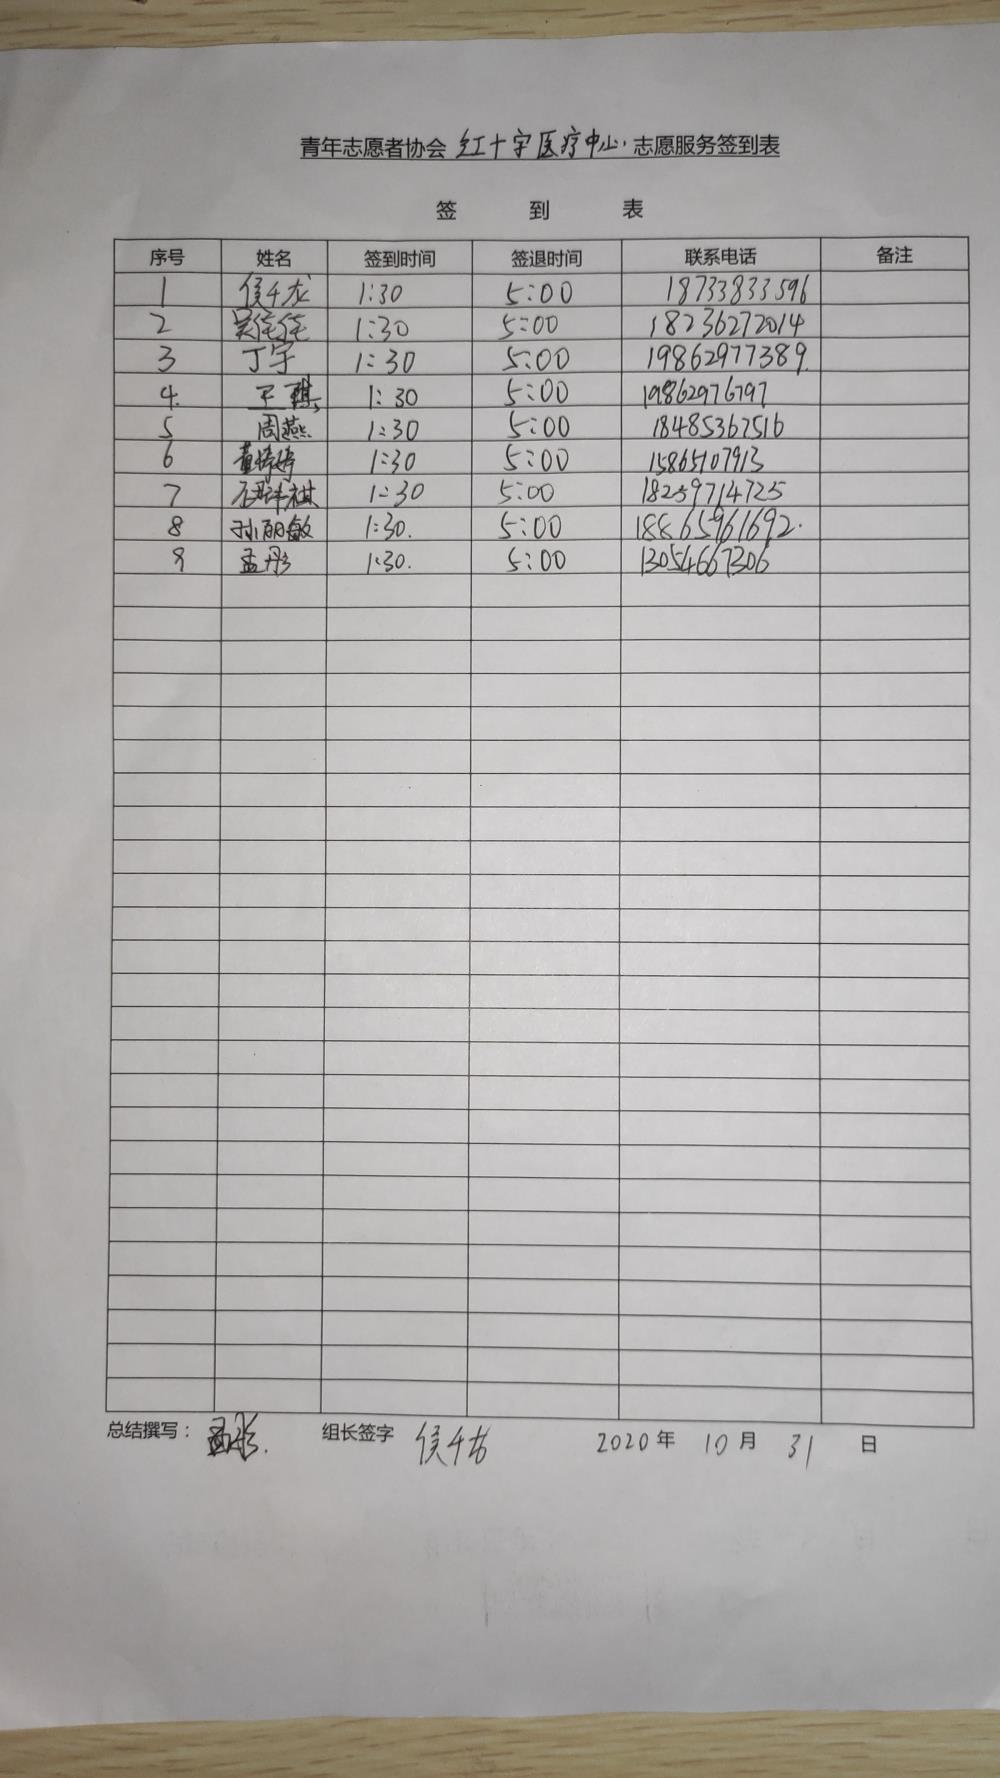 青年志愿者协会 红十字医疗中心 志愿服务签到表
签 到 表
序号 姓名 签到时间 签退时间 联系电话 备注
1 侯千龙 1:30 5:00 18733833596
2 吴佳佳 1:30 5:00 18236272014
3 丁宇 1:30 5:00 19862977389
4. 王琪 1:30 5:00 19862976797
5 周燕 1:30 5:00 18485367516
6 董婷婷 1:30 5:00 15865107913
7 1:30 5:00 18259714725
8 孙丽敏 1:30. 5:00 18865961692.
9 孟彤 1:30. 5:00 13054667306
总结撰写： 孟彤. 组长签字 侯千龙 2020 年 10 月 31 日